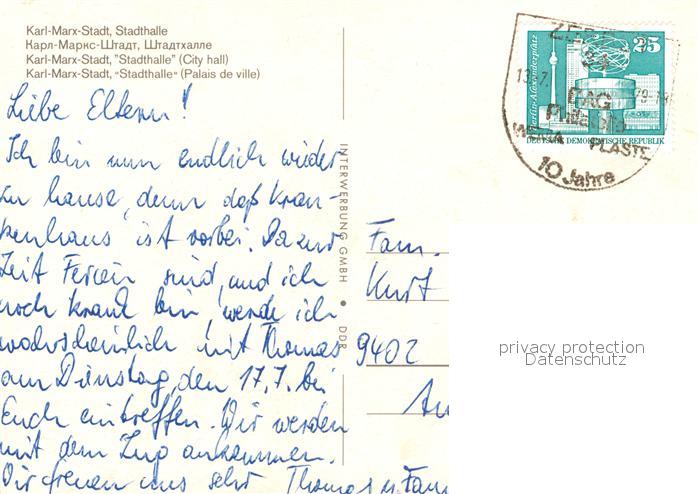 Karl-Marx-Stadt, Stadthalle
Карл-Маркс-Штадт, Штадтхалле
Karl-Marx-Stadt, "Stadthalle" (City hall)
Karl-Marx-Stadt, «Stadthalle» (Palais de ville)
Liebe Eltern!
Ich bin nun endlich wieder
zu hause, denn daß Kran-
kenhaus ist vorbei. Da zur
Zeit Ferien sind, und ich
noch krank bin, werde ich
wahrscheinlich mit Thomas
am Dinstag, den 17.7. bei
Euch eintreffen. Wir werden
mit dem Zug ankommen.
Wir freuen uns sehr Thomas u. Fam
INTERWERBUNG GMBH • DDR
Fam.
Kurt
9402
Au
25
Berlin-Alexanderplatz
DEUTSCHE DEMOKRATISCHE REPUBLIK
13.7.
BAG
Philatelie
PLASTE
10 Jahre
privacy protection
Datenschutz